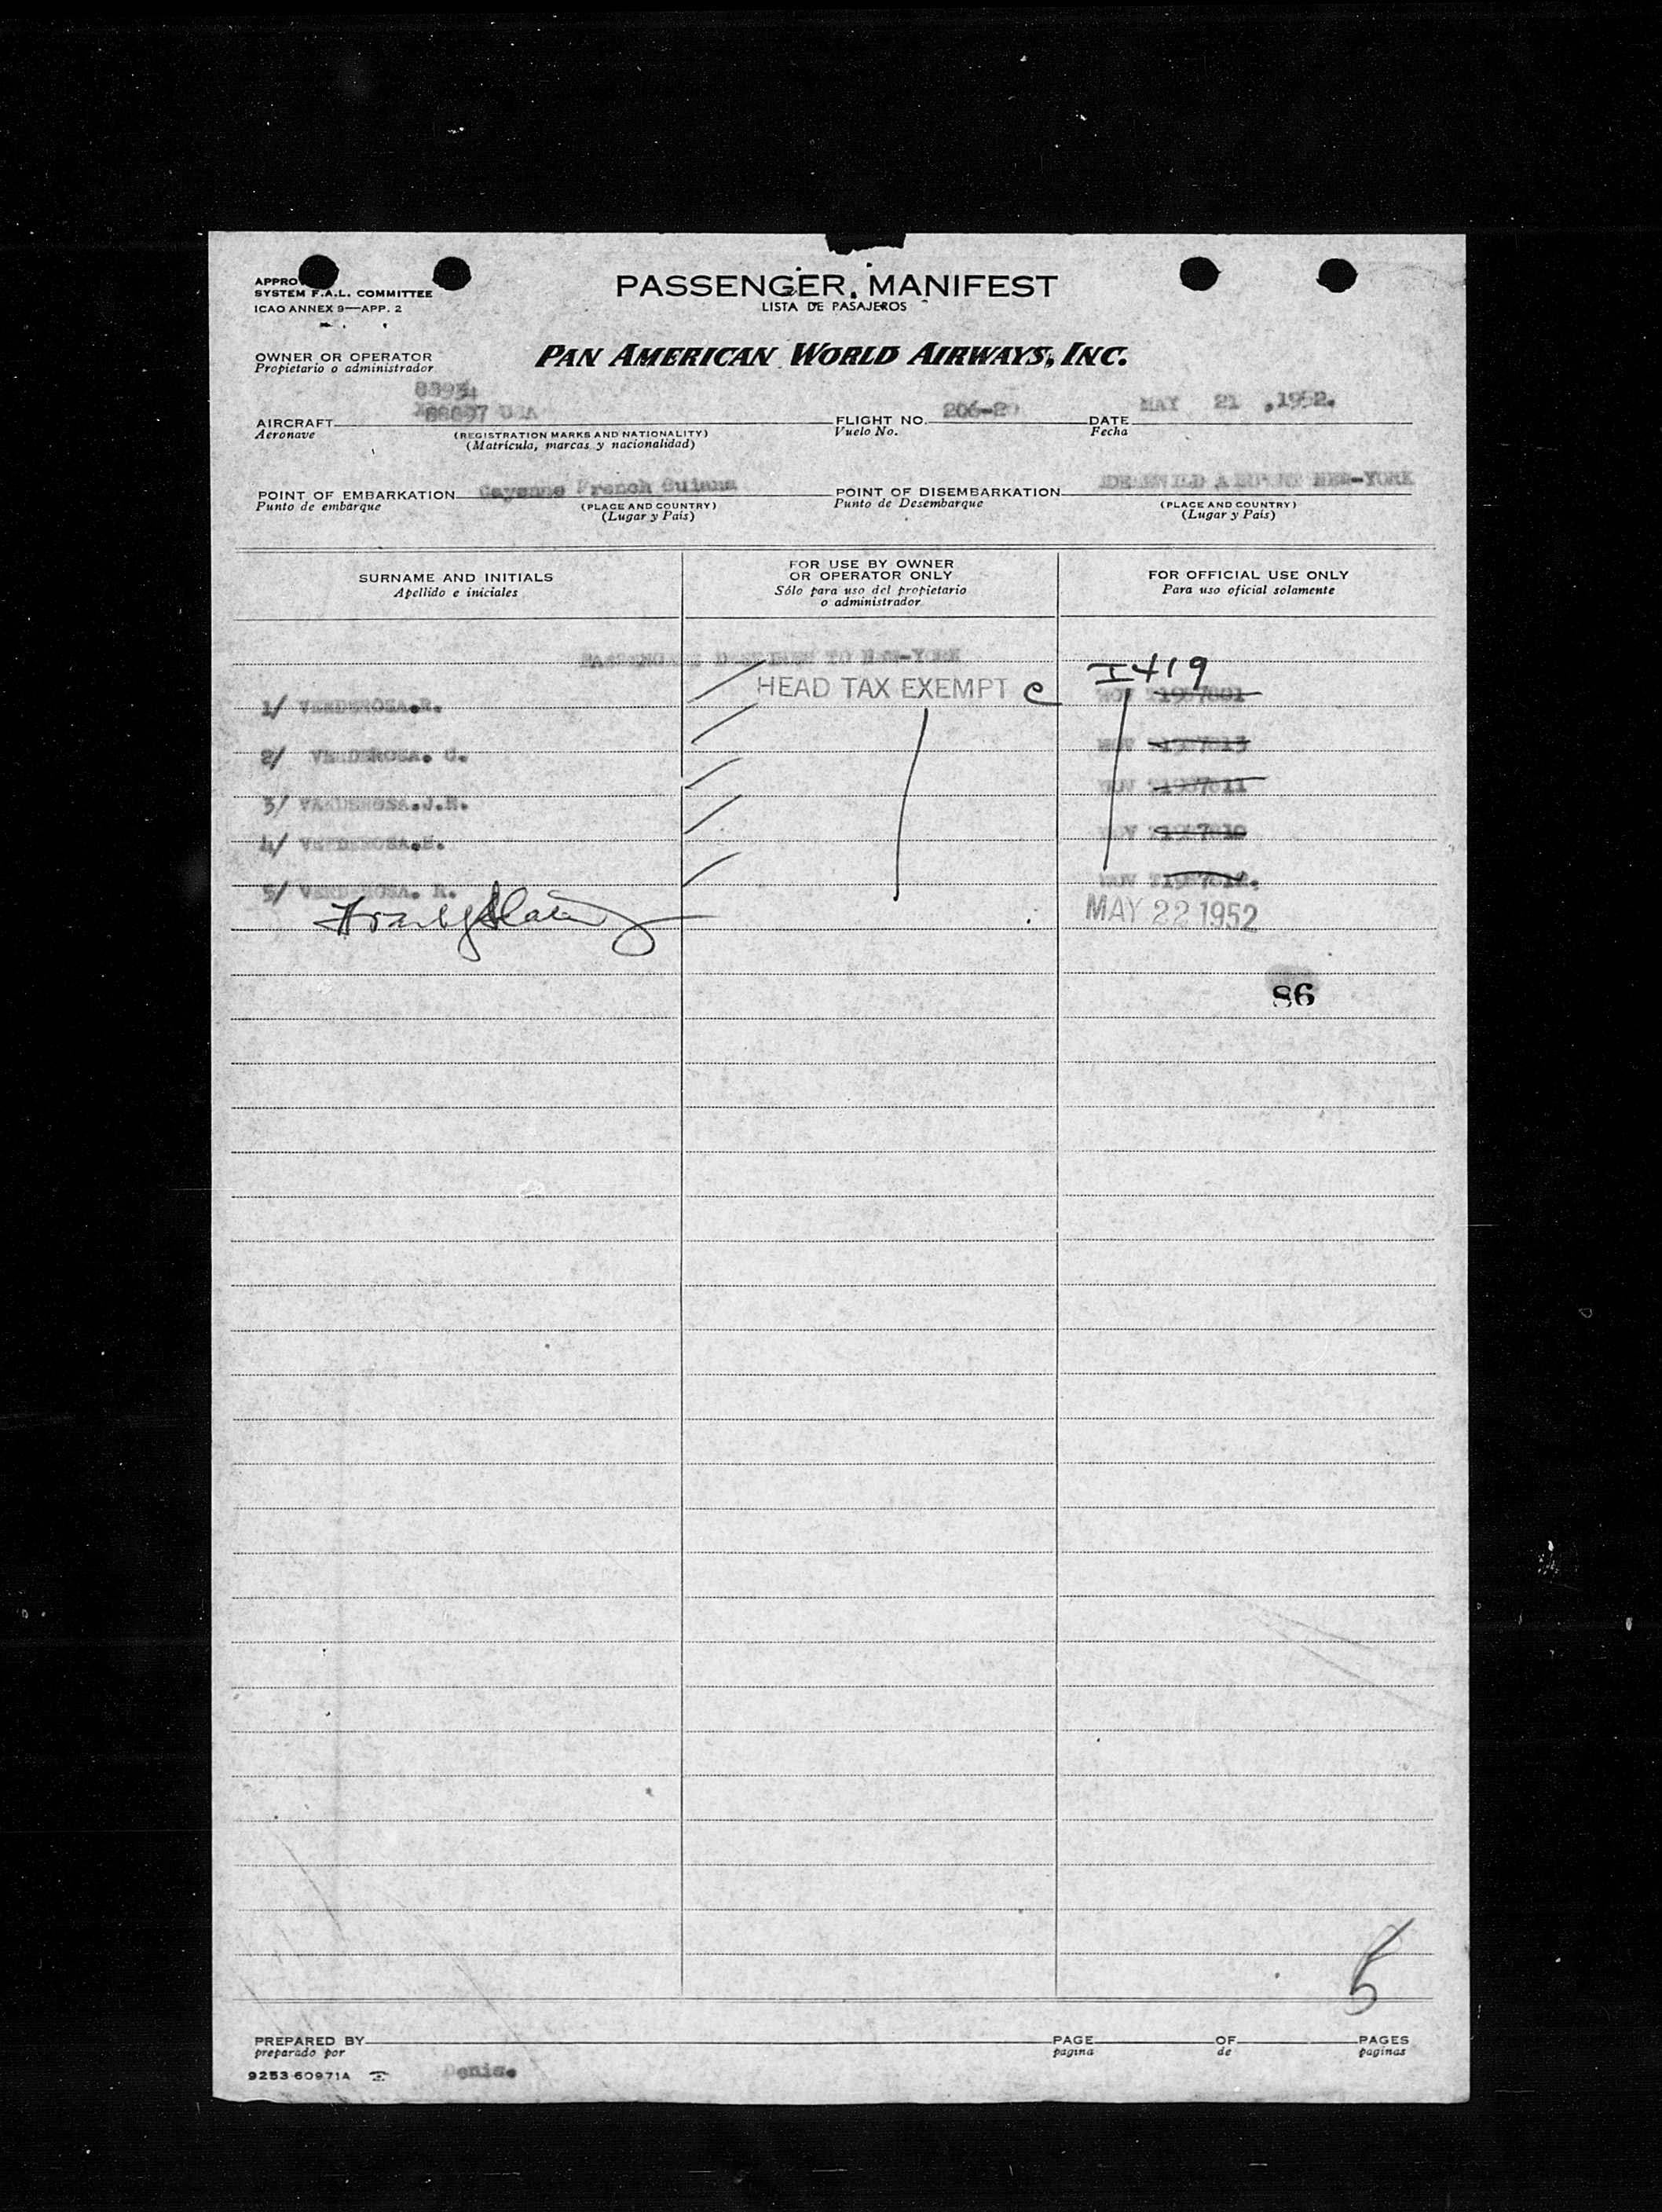 PASSENGER MANIFEST
LISTA DE PASAJEROS
SYSTEM F.A.L. COMMITTEE
ICAO ANNEX 9—APP. 2
OWNER OR OPERATOR
Propietario o administrador
PAN AMERICAN WORLD AIRWAYS, INC.
88934
AIRCRAFT USA
Aeronave
(REGISTRATION MARKS AND NATIONALITY)
(Matrícula, marcas y nacionalidad)
FLIGHT NO. 206-20
Vuelo No.
DATE MAY 21 ,1952.
Fecha
POINT OF EMBARKATION Cayenne French Guiana
Punto de embarque
(PLACE AND COUNTRY)
(Lugar y País)
POINT OF DISEMBARKATION IDLEWILD AIRPORT NEW-YORK
Punto de Desembarque
(PLACE AND COUNTRY)
(Lugar y País)
SURNAME AND INITIALS
Apellido e iniciales
FOR USE BY OWNER
OR OPERATOR ONLY
Sólo para uso del propietario
o administrador
FOR OFFICIAL USE ONLY
Para uso oficial solamente
PASSENGERS DESTINED TO NEW-YORK
HEAD TAX EXEMPT
I 419
1/ VERDEROSA.R.
2/ VERDEROSA. C.
3/ VERDEROSA.J.
4/ VERDEROSA.
5/ VERDEROSA. R.
MAY 22 1952
86
5
PREPARED BY
preparado por
PAGE OF PAGES
pagina de paginas
9253 60971A
Denis.